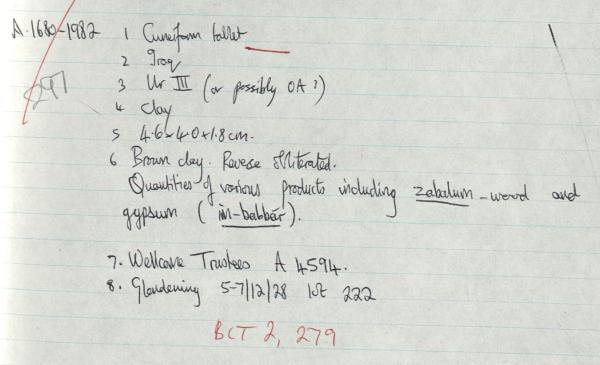 A.1680-1982 1 Cuneiform tablet
2 Iraq
297
3 Ur III (or possibly OA?)
4 Clay
5 4.6 x 4.0 x 1.8 cm.
6 Brown clay. Reverse obliterated.
Quantities of various products including zabalum-wood and
gypsum (im-babbár).
7. Wellcome Trustees A 4594.
8. Glendening 5-7/12/28 lot 222
BCT 2, 279